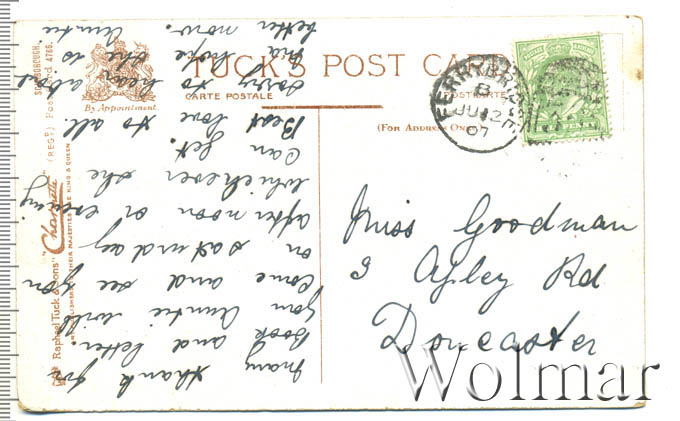 TUCK'S POST CARD
By Appointment.
CARTE POSTALE
POSTKARTE
(For Address Only)
FERRYBRIDGE
B
JU 12
07
Miss Goodman
9 Apley Rd
Doncaster
many thank for
book and letter.
you Auntie will
come and see you
on saturday
afternoon or evening
whichever she
can get.
Best love to all.
sorry to hear about
ma hope she is
better now. Auntie
Raphael Tuck & Sons'
(REGD) Post Card 4766.
SCARBOROUGH.
PUBLISHERS TO THEIR MAJESTIES THE KING & QUEEN
Wolmar